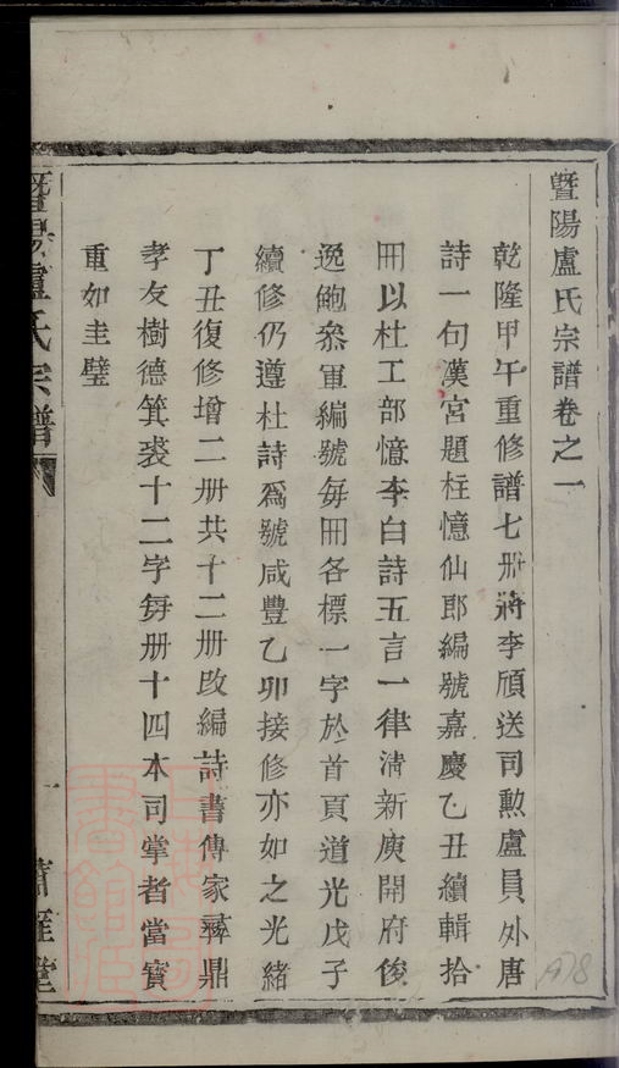 暨陽盧氏宗譜卷之一
乾隆甲午重修譜七册將李頎送司勲盧員外唐
詩一句漢宮題柱憶仙郎編號嘉慶乙丑續輯拾
冊以杜工部憶李白詩五言一律淸新庾開府俊
逸鮑叅軍編號每冊各標一字於首頁道光戊子
續修仍遵杜詩爲號咸豐乙卯接修亦如之光緒
丁丑復修增二册共十二册改編詩書傳家彞鼎
孝友樹德箕裘十二字每册十四本司掌者當寳
重如圭璧
暨陽盧氏宗譜
一